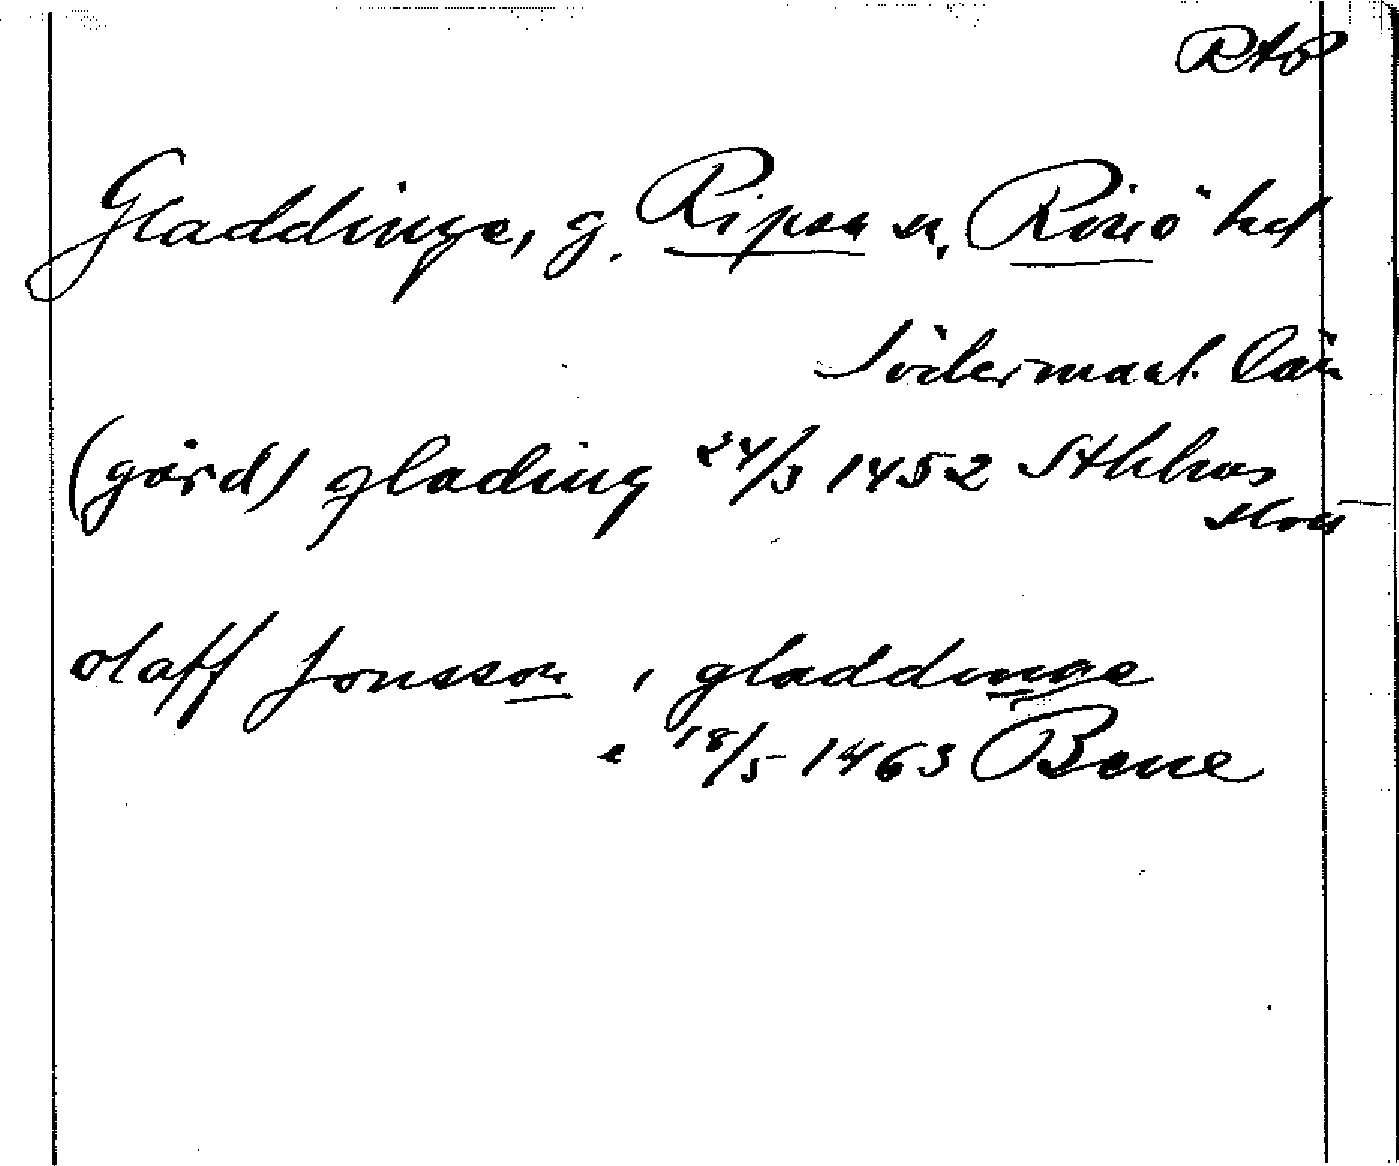 Gladdinge, g. Ripsa sn. Rönö hd
Södermanl. län
(gård) glading 24/3 1452 Sthlms
olaff Jonsson i gladdinge
e 18/5 1463 Bene